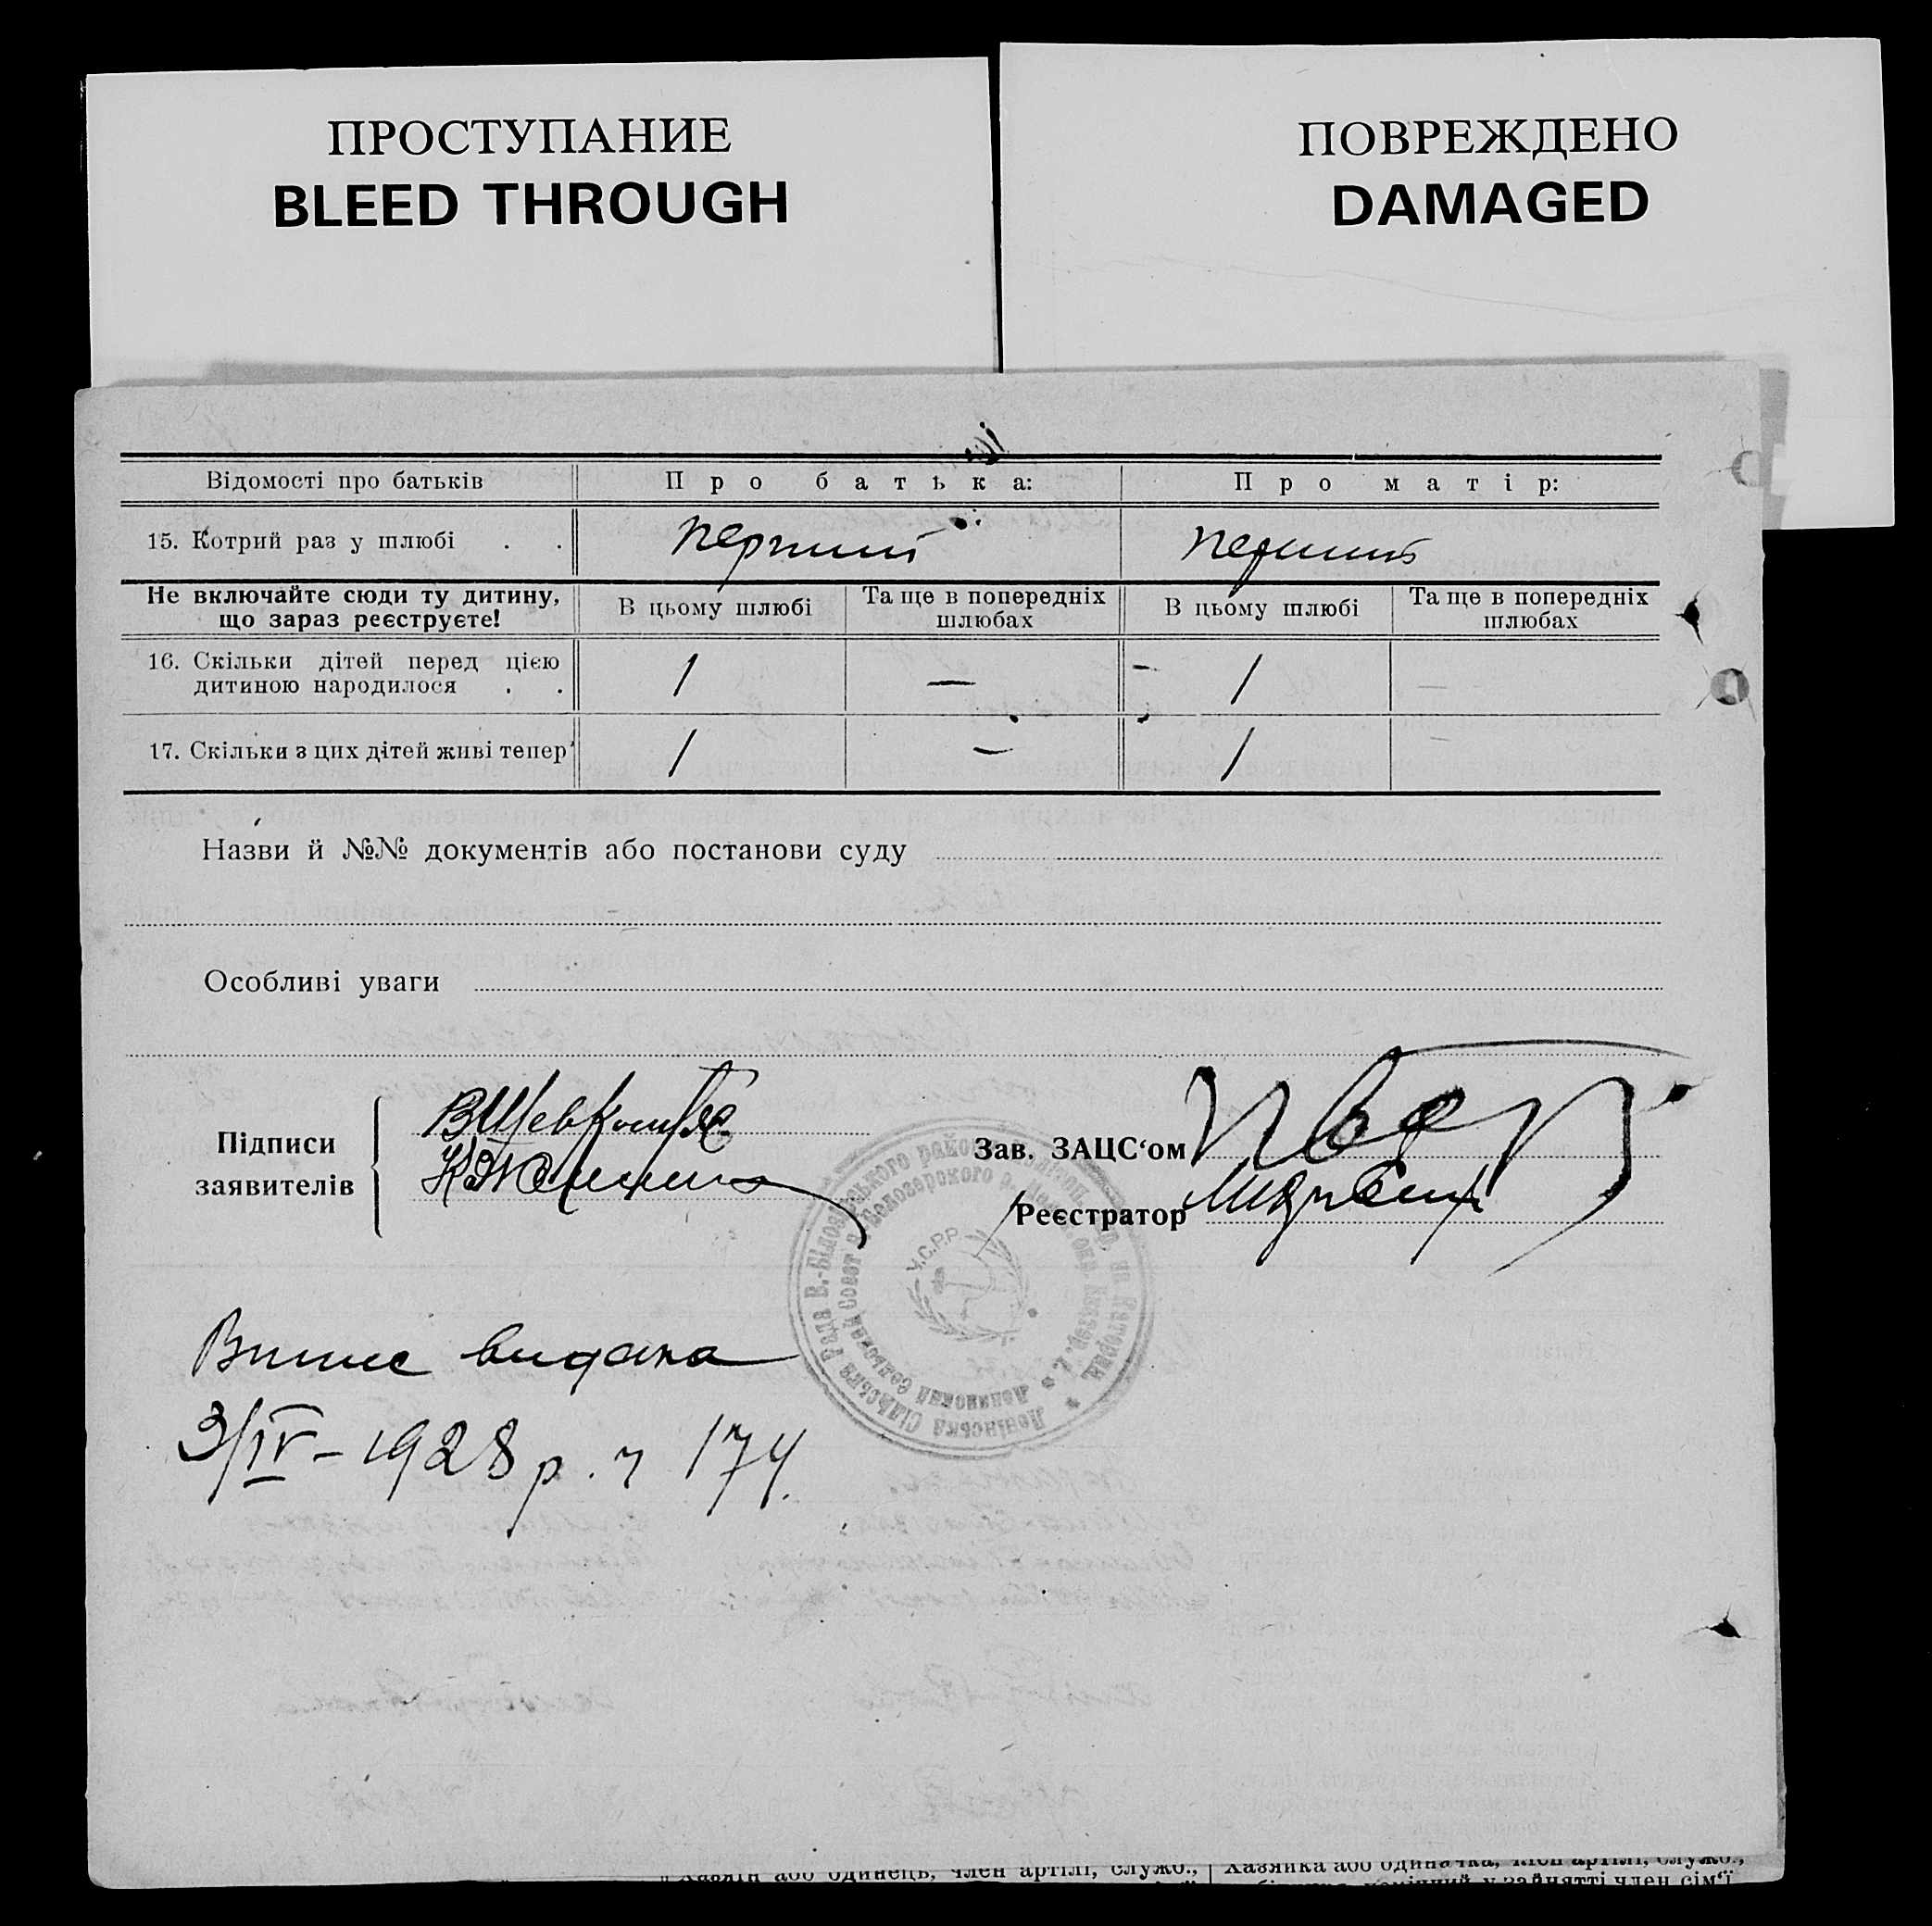 ПРОСТУПАНИЕ
BLEED THROUGH
ПОВРЕЖДЕНО
DAMAGED
Відомості про батьків
Про батька:
Про матір:
15. Котрий раз у шлюбі . .
перший
перший
Не включайте сюди ту дитину,
що зараз реєструєте!
В цьому шлюбі
Та ще в попередніх
шлюбах
В цьому шлюбі
Та ще в попередніх
шлюбах
16. Скільки дітей перед цією
дитиною народилося . .
1
—
1
17. Скільки з цих дітей живі тепер
1
—
1
Назви й №№ документів або постанови суду
Особливі уваги
Підписи
заявителів
Зав. ЗАЦС‘ом
Реєстратор
У.С.Р.Р.
Ленінська Сільська Рада В.-Білозерського району
Випис видана
3/IV - 1928 р. ч 174.
Хазяїн або одинець, член артілі, служб.,
Хазяйка або одиначка, член артілі, служб.,